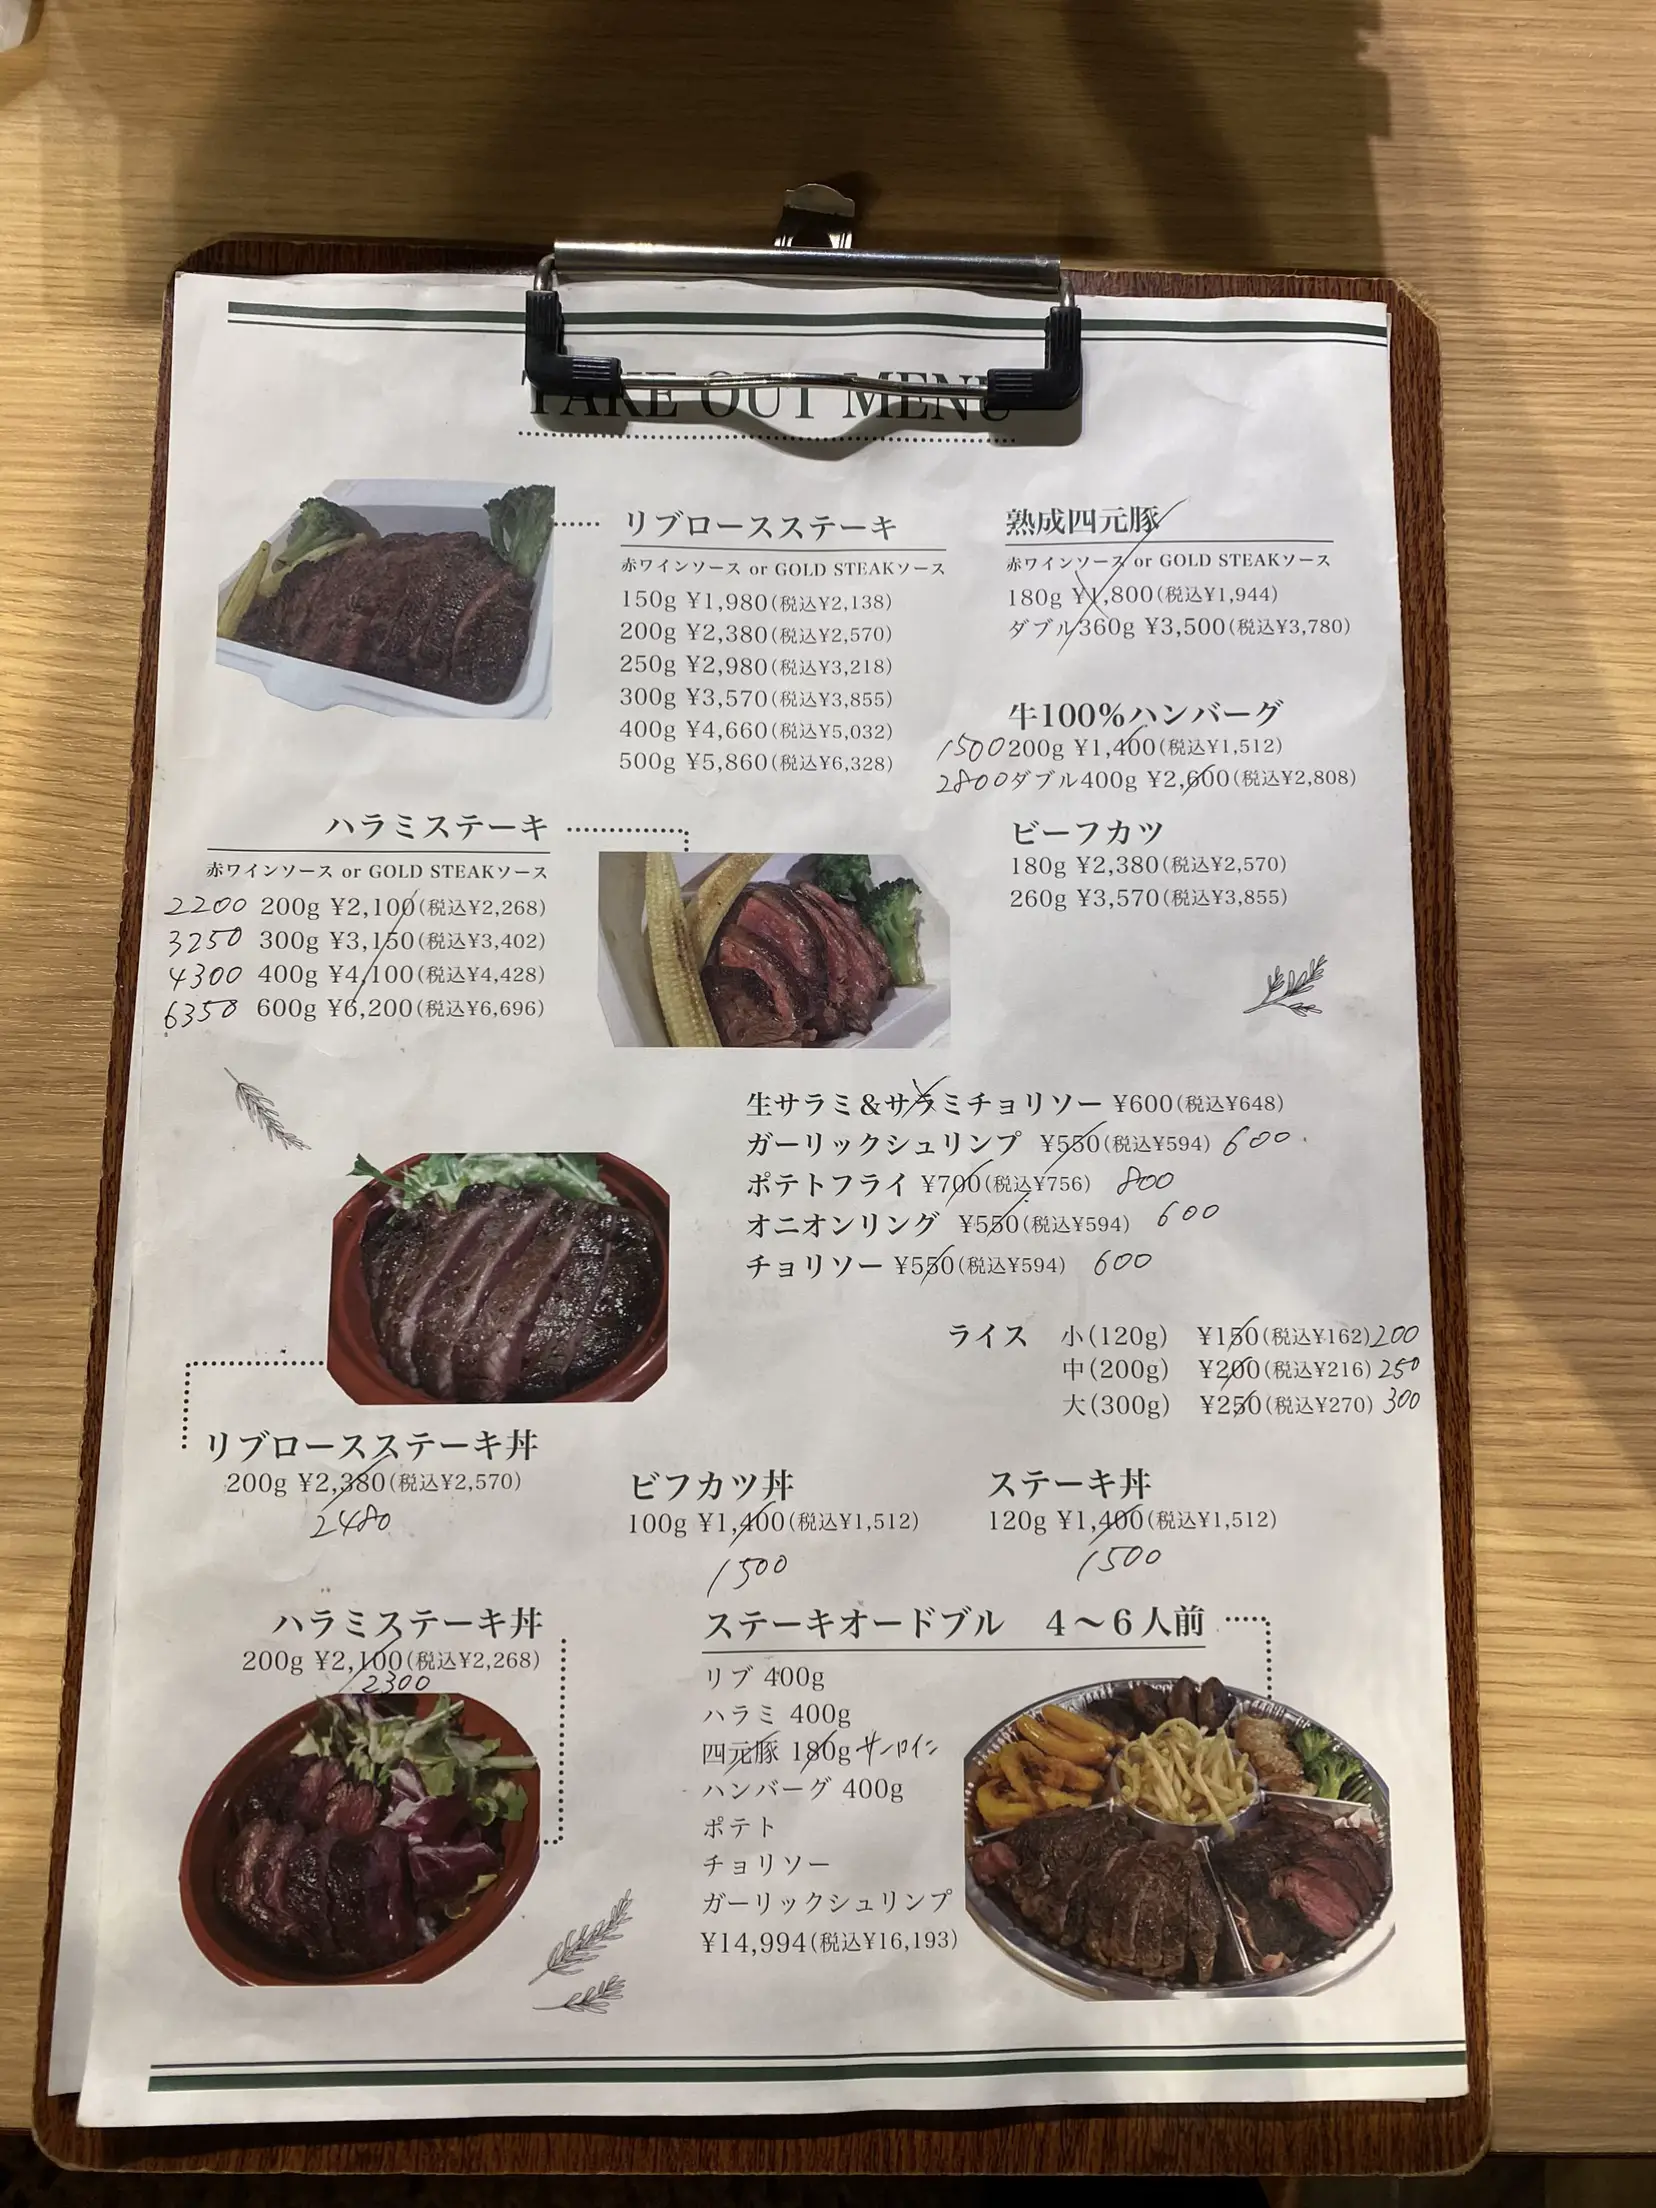 TAKE OUT MENU
リブロースステーキ
赤ワインソース or GOLD STEAKソース
150g ¥1,980(税込¥2,138)
200g ¥2,380(税込¥2,570)
250g ¥2,980(税込¥3,218)
300g ¥3,570(税込¥3,855)
400g ¥4,660(税込¥5,032)
500g ¥5,860(税込¥6,328)
熟成四元豚
赤ワインソース or GOLD STEAKソース
180g ¥1,800(税込¥1,944)
ダブル360g ¥3,500(税込¥3,780)
牛100%ハンバーグ
1500 200g ¥1,400(税込¥1,512)
2800 ダブル400g ¥2,600(税込¥2,808)
ビーフカツ
180g ¥2,380(税込¥2,570)
260g ¥3,570(税込¥3,855)
ハラミステーキ
赤ワインソース or GOLD STEAKソース
2200 200g ¥2,100(税込¥2,268)
3250 300g ¥3,150(税込¥3,402)
4300 400g ¥4,100(税込¥4,428)
6350 600g ¥6,200(税込¥6,696)
生サラミ&サラミチョリソー ¥600(税込¥648)
ガーリックシュリンプ ¥550(税込¥594) 600
ポテトフライ ¥700(税込¥756) 800
オニオンリング ¥550(税込¥594) 600
チョリソー ¥550(税込¥594) 600
ライス 小(120g) ¥150(税込¥162) 200
中(200g) ¥200(税込¥216) 250
大(300g) ¥250(税込¥270) 300
リブロースステーキ丼
200g ¥2,380(税込¥2,570)
2480
ビフカツ丼
100g ¥1,400(税込¥1,512)
1500
ステーキ丼
120g ¥1,400(税込¥1,512)
1500
ハラミステーキ丼
200g ¥2,100(税込¥2,268)
2300
ステーキオードブル 4～6人前
リブ 400g
ハラミ 400g
四元豚 180g サーロイン
ハンバーグ 400g
ポテト
チョリソー
ガーリックシュリンプ
¥14,994(税込¥16,193)